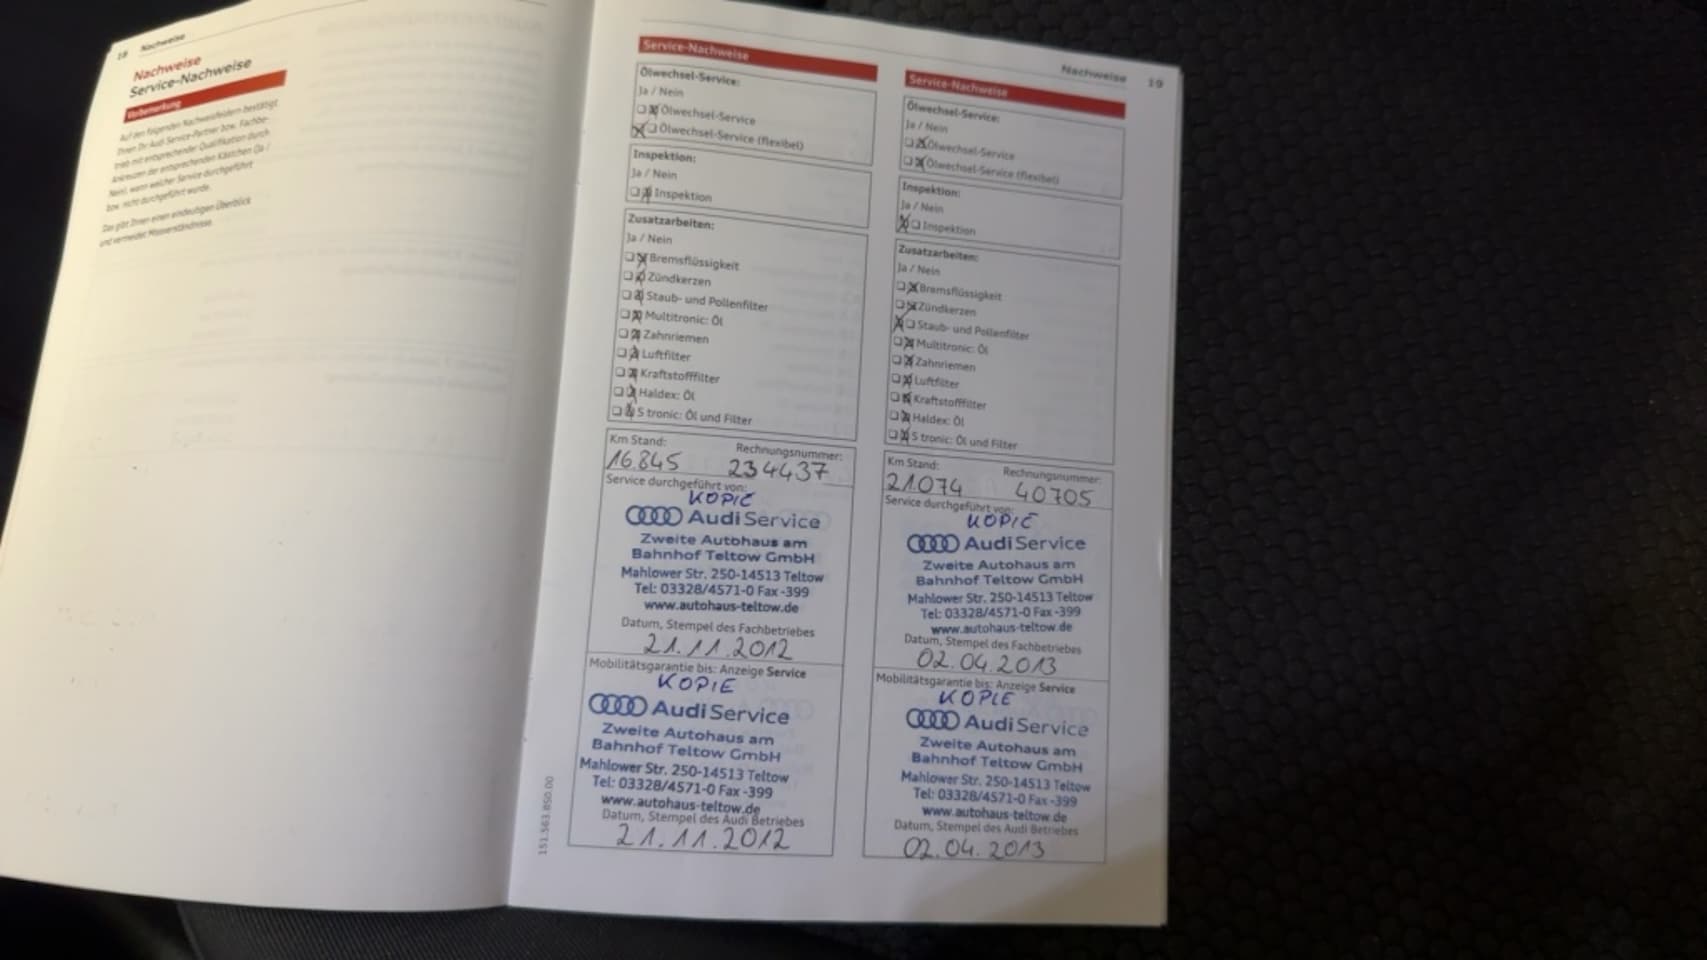 18 Nachweise
Nachweise
Service-Nachweise
Vorbemerkung
Auf den folgenden Nachweisfeldern bestätigt
Ihnen Ihr Audi Service-Partner bzw. Fachbe-
trieb mit entsprechender Qualifikation durch
Ankreuzen der entsprechenden Kästchen (Ja /
Nein), wann welcher Service durchgeführt
bzw. nicht durchgeführt wurde.
Das gibt Ihnen einen eindeutigen Überblick
und vermeidet Missverständnisse.
Service-Nachweise
Ölwechsel-Service:
Ja / Nein
Ölwechsel-Service
Ölwechsel-Service (flexibel)
Inspektion:
Ja / Nein
Inspektion
Zusatzarbeiten:
Ja / Nein
Bremsflüssigkeit
Zündkerzen
Staub- und Pollenfilter
Multitronic: Öl
Zahnriemen
Luftfilter
Kraftstofffilter
Haldex: Öl
S tronic: Öl und Filter
Km Stand: Rechnungsnummer:
16.845 234437
Service durchgeführt von:
KOPIE
Audi Service
Zweite Autohaus am
Bahnhof Teltow GmbH
Mahlower Str. 250-14513 Teltow
Tel: 03328/4571-0 Fax -399
www.autohaus-teltow.de
Datum, Stempel des Fachbetriebes
21.11.2012
Mobilitätsgarantie bis: Anzeige Service
KOPIE
Audi Service
Zweite Autohaus am
Bahnhof Teltow GmbH
Mahlower Str. 250-14513 Teltow
Tel: 03328/4571-0 Fax -399
www.autohaus-teltow.de
Datum, Stempel des Audi Betriebes
21.11.2012
151.563.850.00
Nachweise 19
Service-Nachweise
Ölwechsel-Service:
Ja / Nein
Ölwechsel-Service
Ölwechsel-Service (flexibel)
Inspektion:
Ja / Nein
Inspektion
Zusatzarbeiten:
Ja / Nein
Bremsflüssigkeit
Zündkerzen
Staub- und Pollenfilter
Multitronic: Öl
Zahnriemen
Luftfilter
Kraftstofffilter
Haldex: Öl
S tronic: Öl und Filter
Km Stand: Rechnungsnummer:
21.074 40705
Service durchgeführt von:
KOPIE
Audi Service
Zweite Autohaus am
Bahnhof Teltow GmbH
Mahlower Str. 250-14513 Teltow
Tel: 03328/4571-0 Fax -399
www.autohaus-teltow.de
Datum, Stempel des Fachbetriebes
02.04.2013
Mobilitätsgarantie bis: Anzeige Service
KOPIE
Audi Service
Zweite Autohaus am
Bahnhof Teltow GmbH
Mahlower Str. 250-14513 Teltow
Tel: 03328/4571-0 Fax -399
www.autohaus-teltow.de
Datum, Stempel des Audi Betriebes
02.04.2013